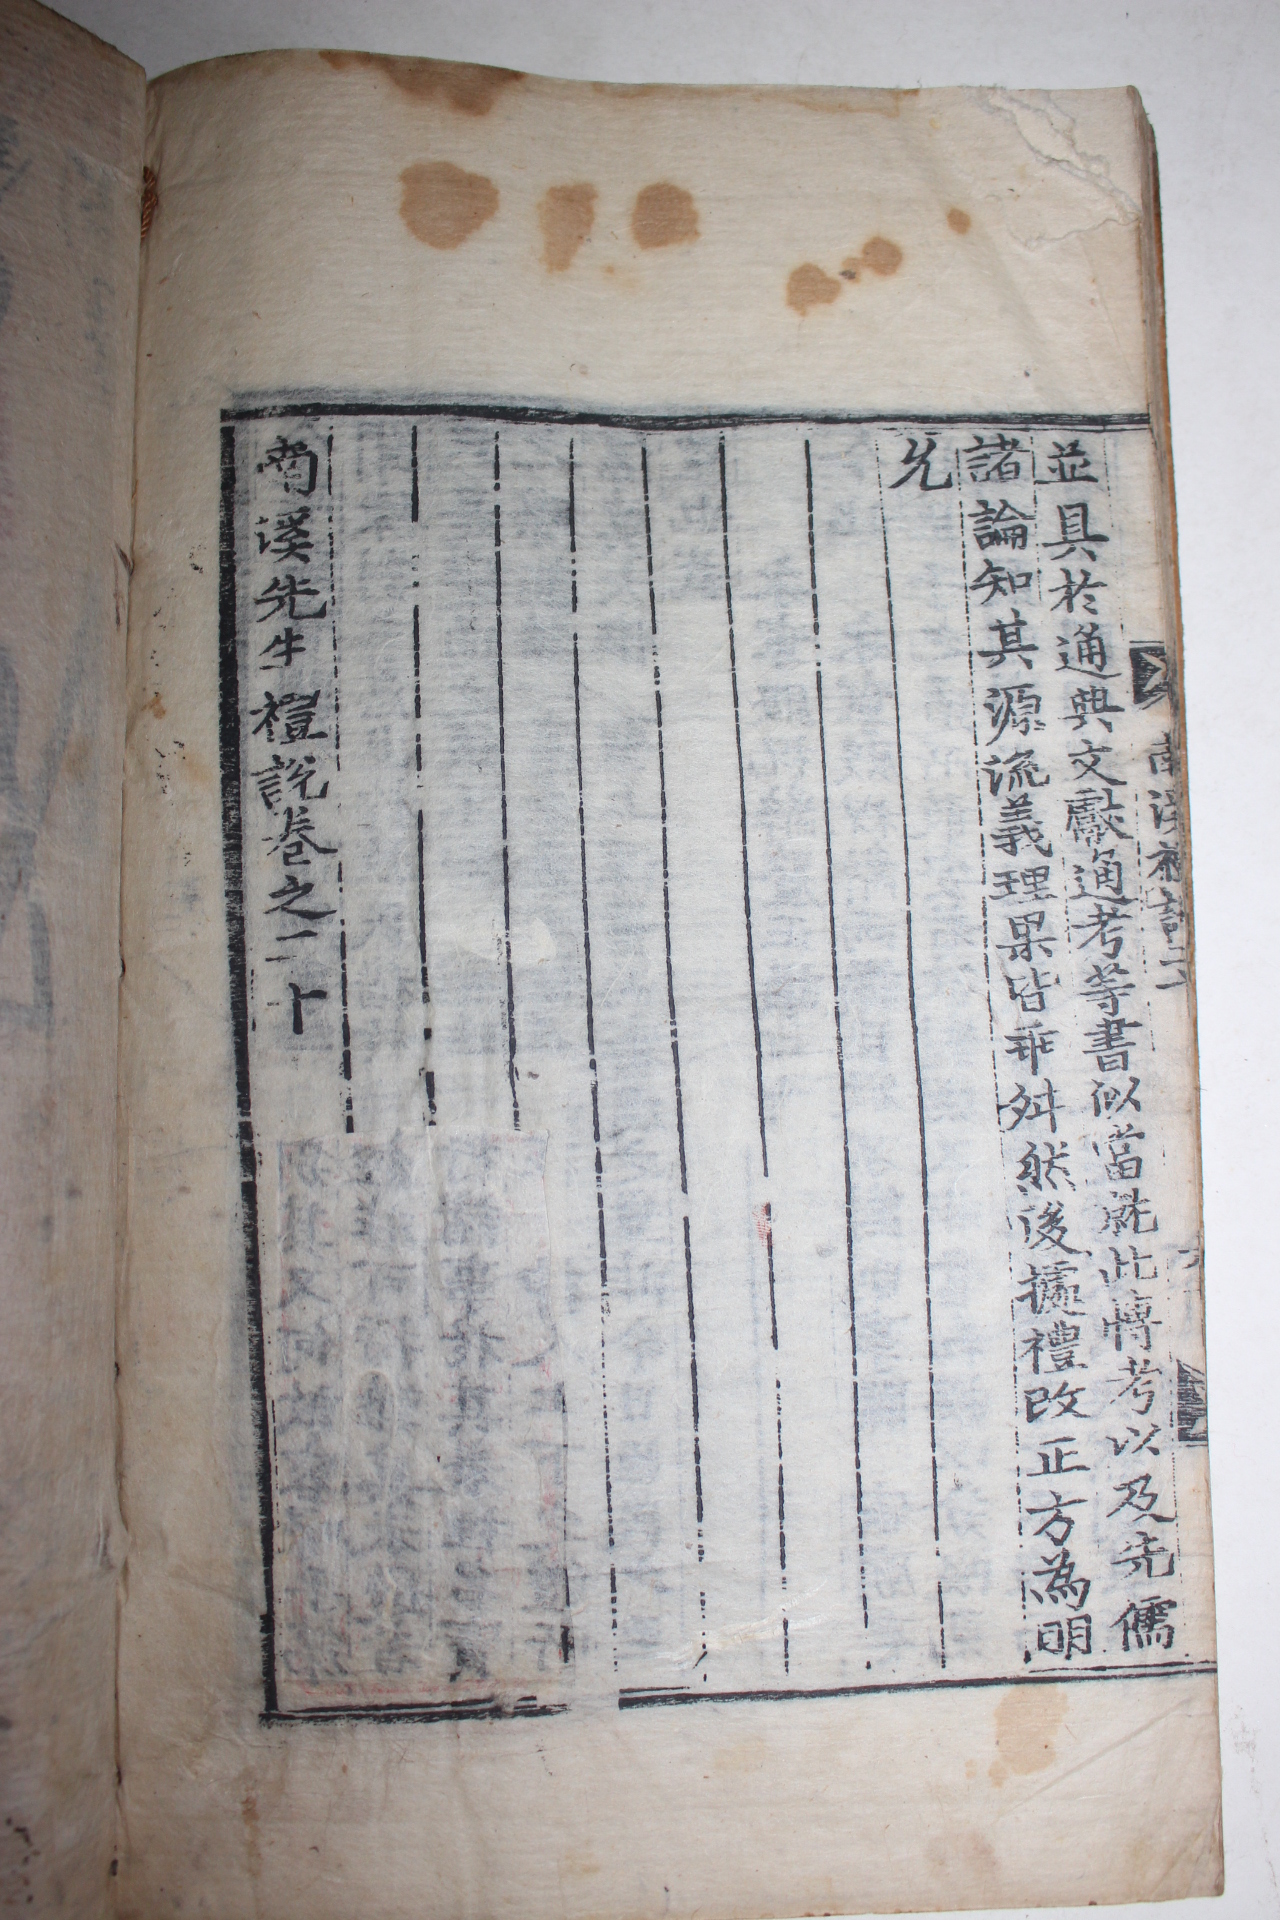 並具於通典文獻通考等書似當就此博考以及先儒
諸論知其源流義理果皆乖舛然後據禮改正方為明
允
南溪先生禮說卷之二十
南溪禮說二